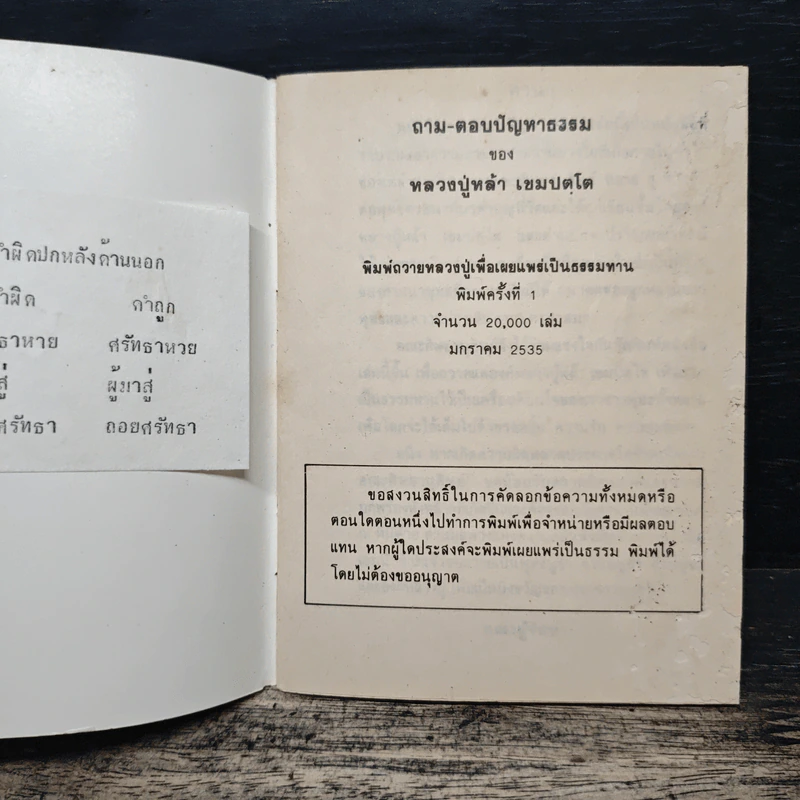 ำผิดปกหลังด้านนอก
ำผิด คำถูก
ธาหาย ศรัทธาหวย
สู่ ผู้มาสู่
ศรัทธา ถอยศรัทธา
ถาม-ตอบปัญหาธรรม
ของ
หลวงปู่หล้า เขมปตฺโต
พิมพ์ถวายหลวงปู่เพื่อเผยแพร่เป็นธรรมทาน
พิมพ์ครั้งที่ 1
จำนวน 20,000 เล่ม
มกราคม 2535
ขอสงวนสิทธิ์ในการคัดลอกข้อความทั้งหมดหรือ
ตอนใดตอนหนึ่งไปทำการพิมพ์เพื่อจำหน่ายหรือมีผลตอบ
แทน หากผู้ใดประสงค์จะพิมพ์เผยแพร่เป็นธรรม พิมพ์ได้
โดยไม่ต้องขออนุญาต